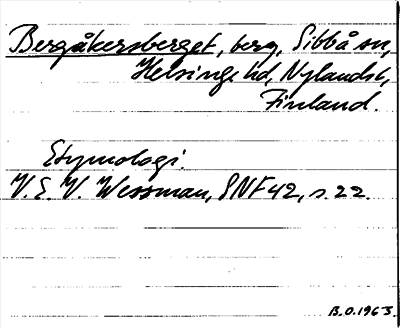 Bergåkersberget, berg, Sibbå sn,
Helsinge hd, Nylands l,
Finland.
Etymologi.
V. E. V. Wessman, SNF 42, s. 22.
B.O. 1963.